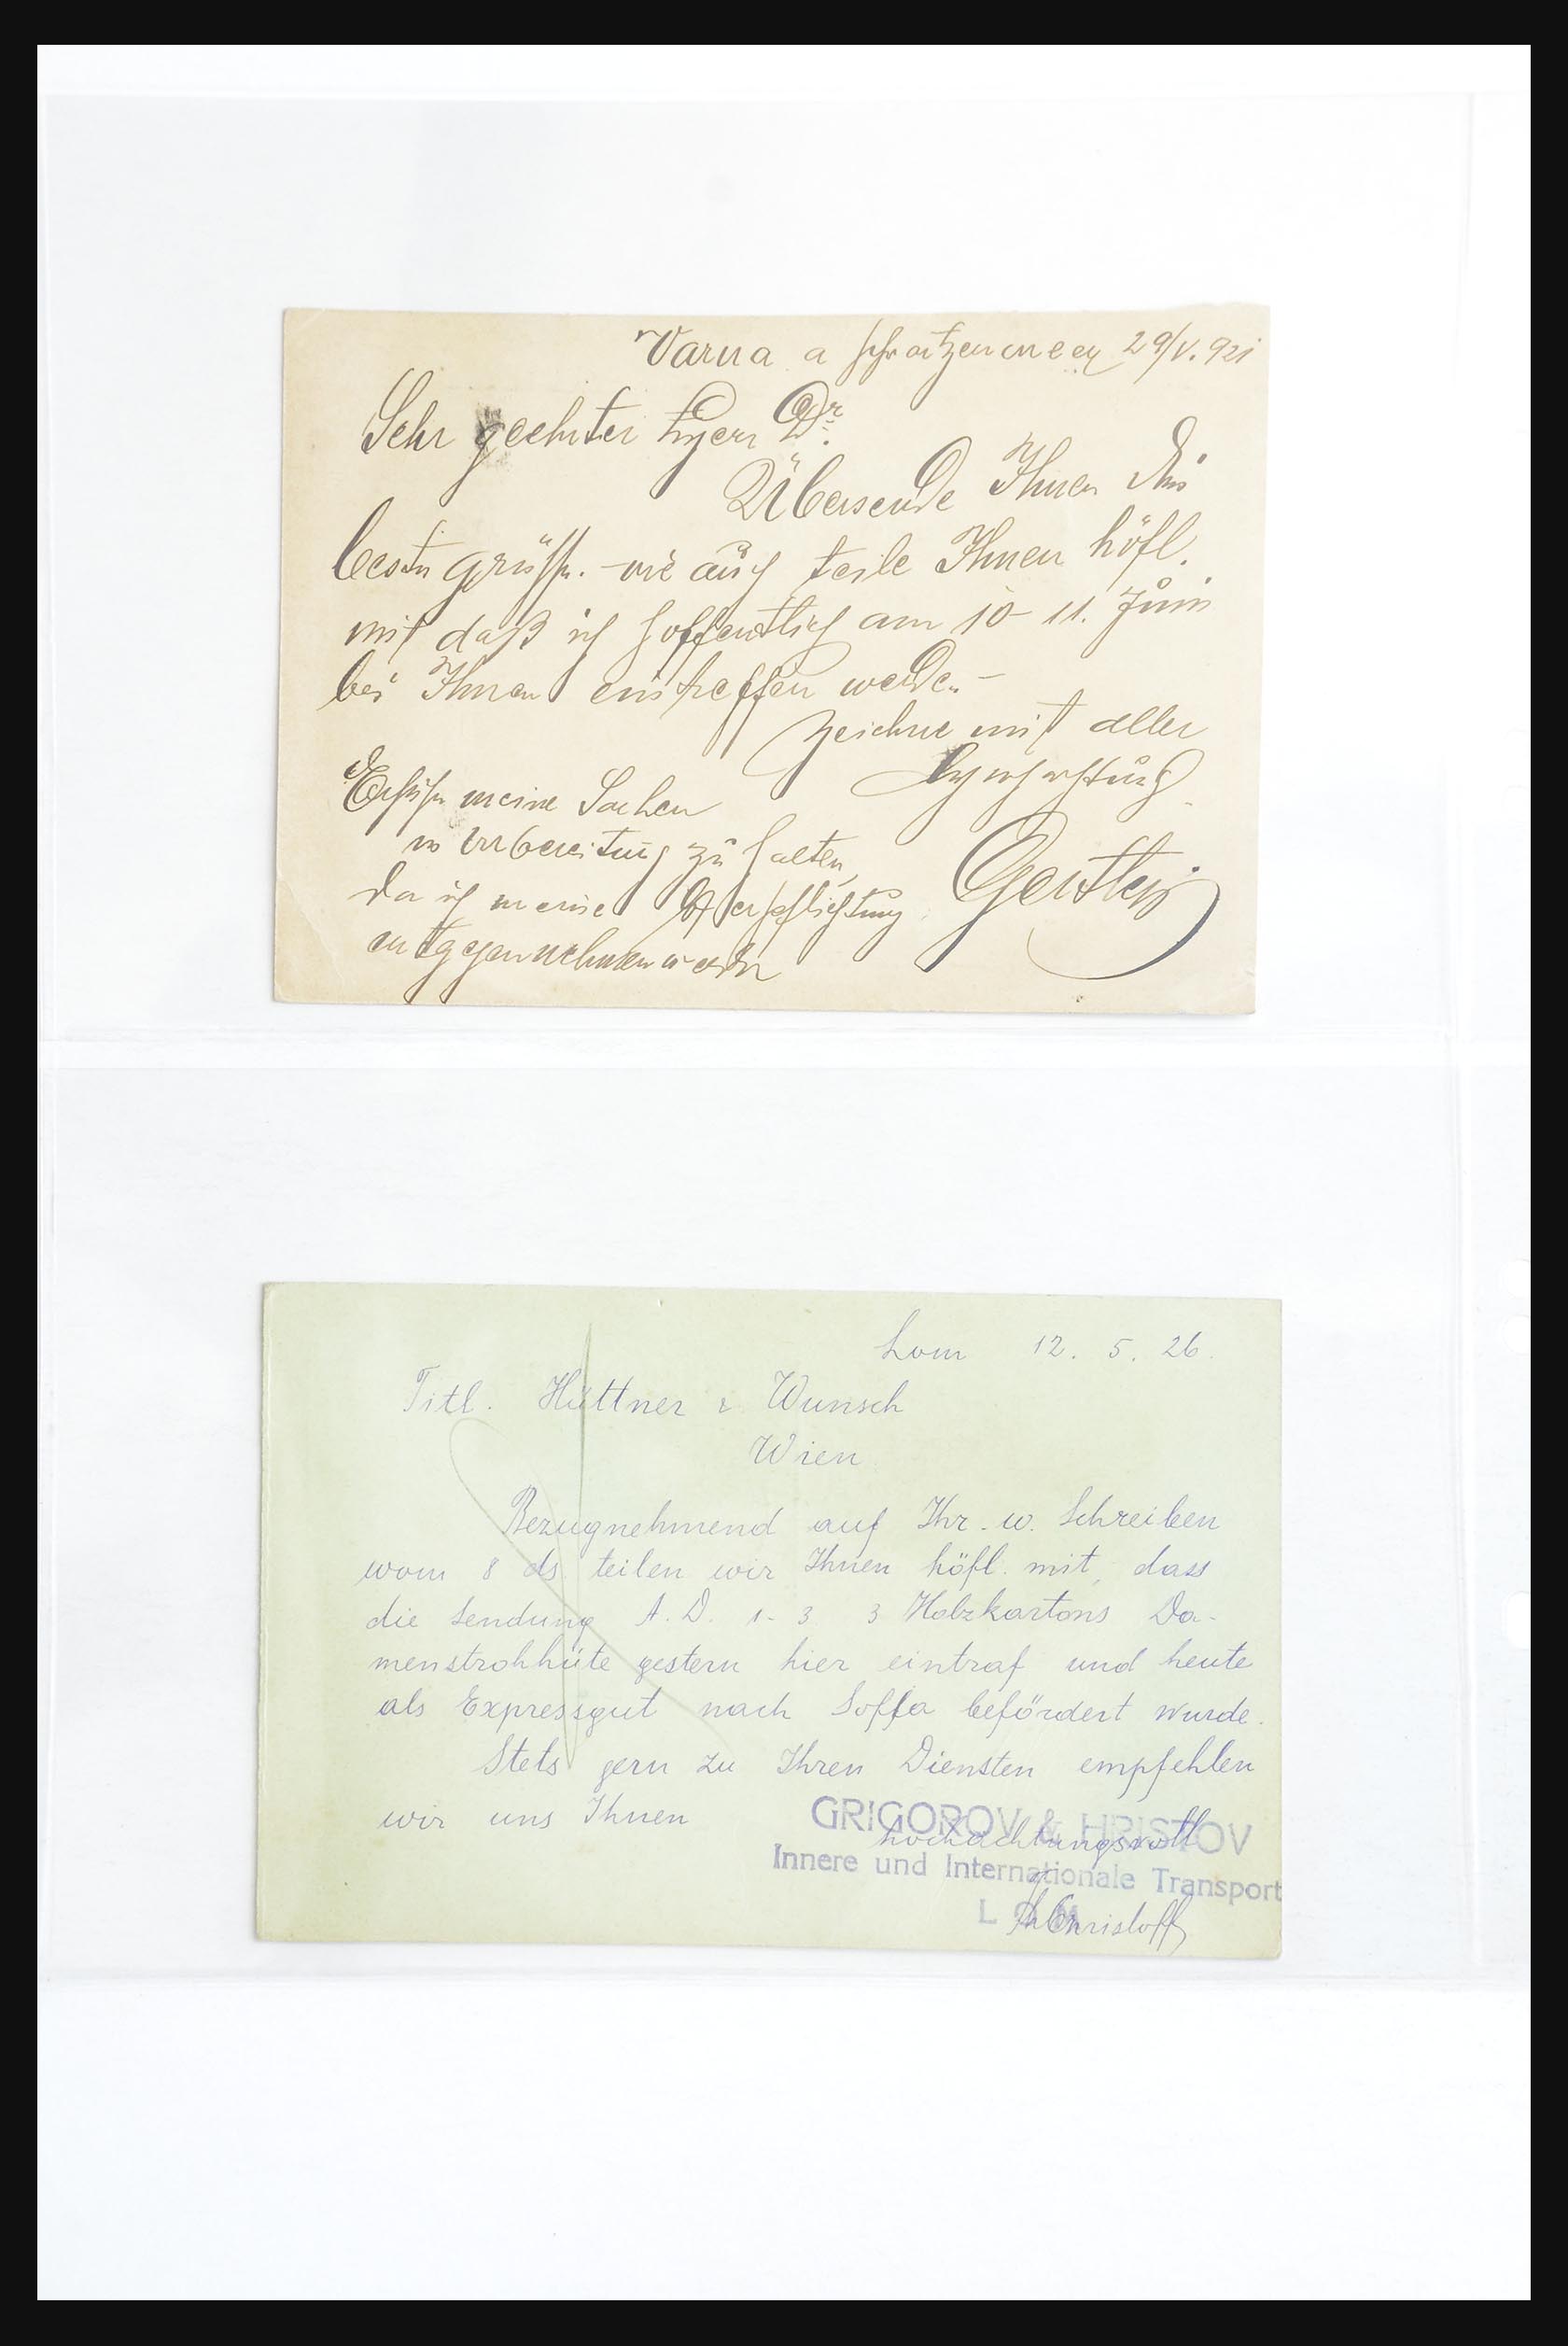 Varna a schwarzen meer 29/V. 921
Sehr geehrter Herr Dr.
Übersende Ihnen die
besten grüsse. wie auch teile Ihnen höfl.
mit daß ich hoffentlich am 10-11. Juni
bei Ihnen eintreffen werde. -
Zeichne mit aller
Hochachtung
Ersuche meine Sachen
in Vorbereitung zu halten,
da ich meine Verpflichtung
entgegennehmen werde
Lom 12. 5. 26.
Titl. Hüttner & Wunsch
Wien
Bezugnehmend auf Ihr. w. Schreiben
vom 8 ds teilen wir Ihnen höfl. mit, dass
die Sendung A. D. 1-3 3 Holzkartons Da-
menstrohhüte gestern hier eintraf und heute
als Expressgut nach Soffia befördert wurde.
Stets gern zu Ihren Diensten empfehlen
wir uns Ihnen
GRIGOROV & HRISTOV
hochachtungsvoll
Innere und Internationale Transport
LOM
Christoff